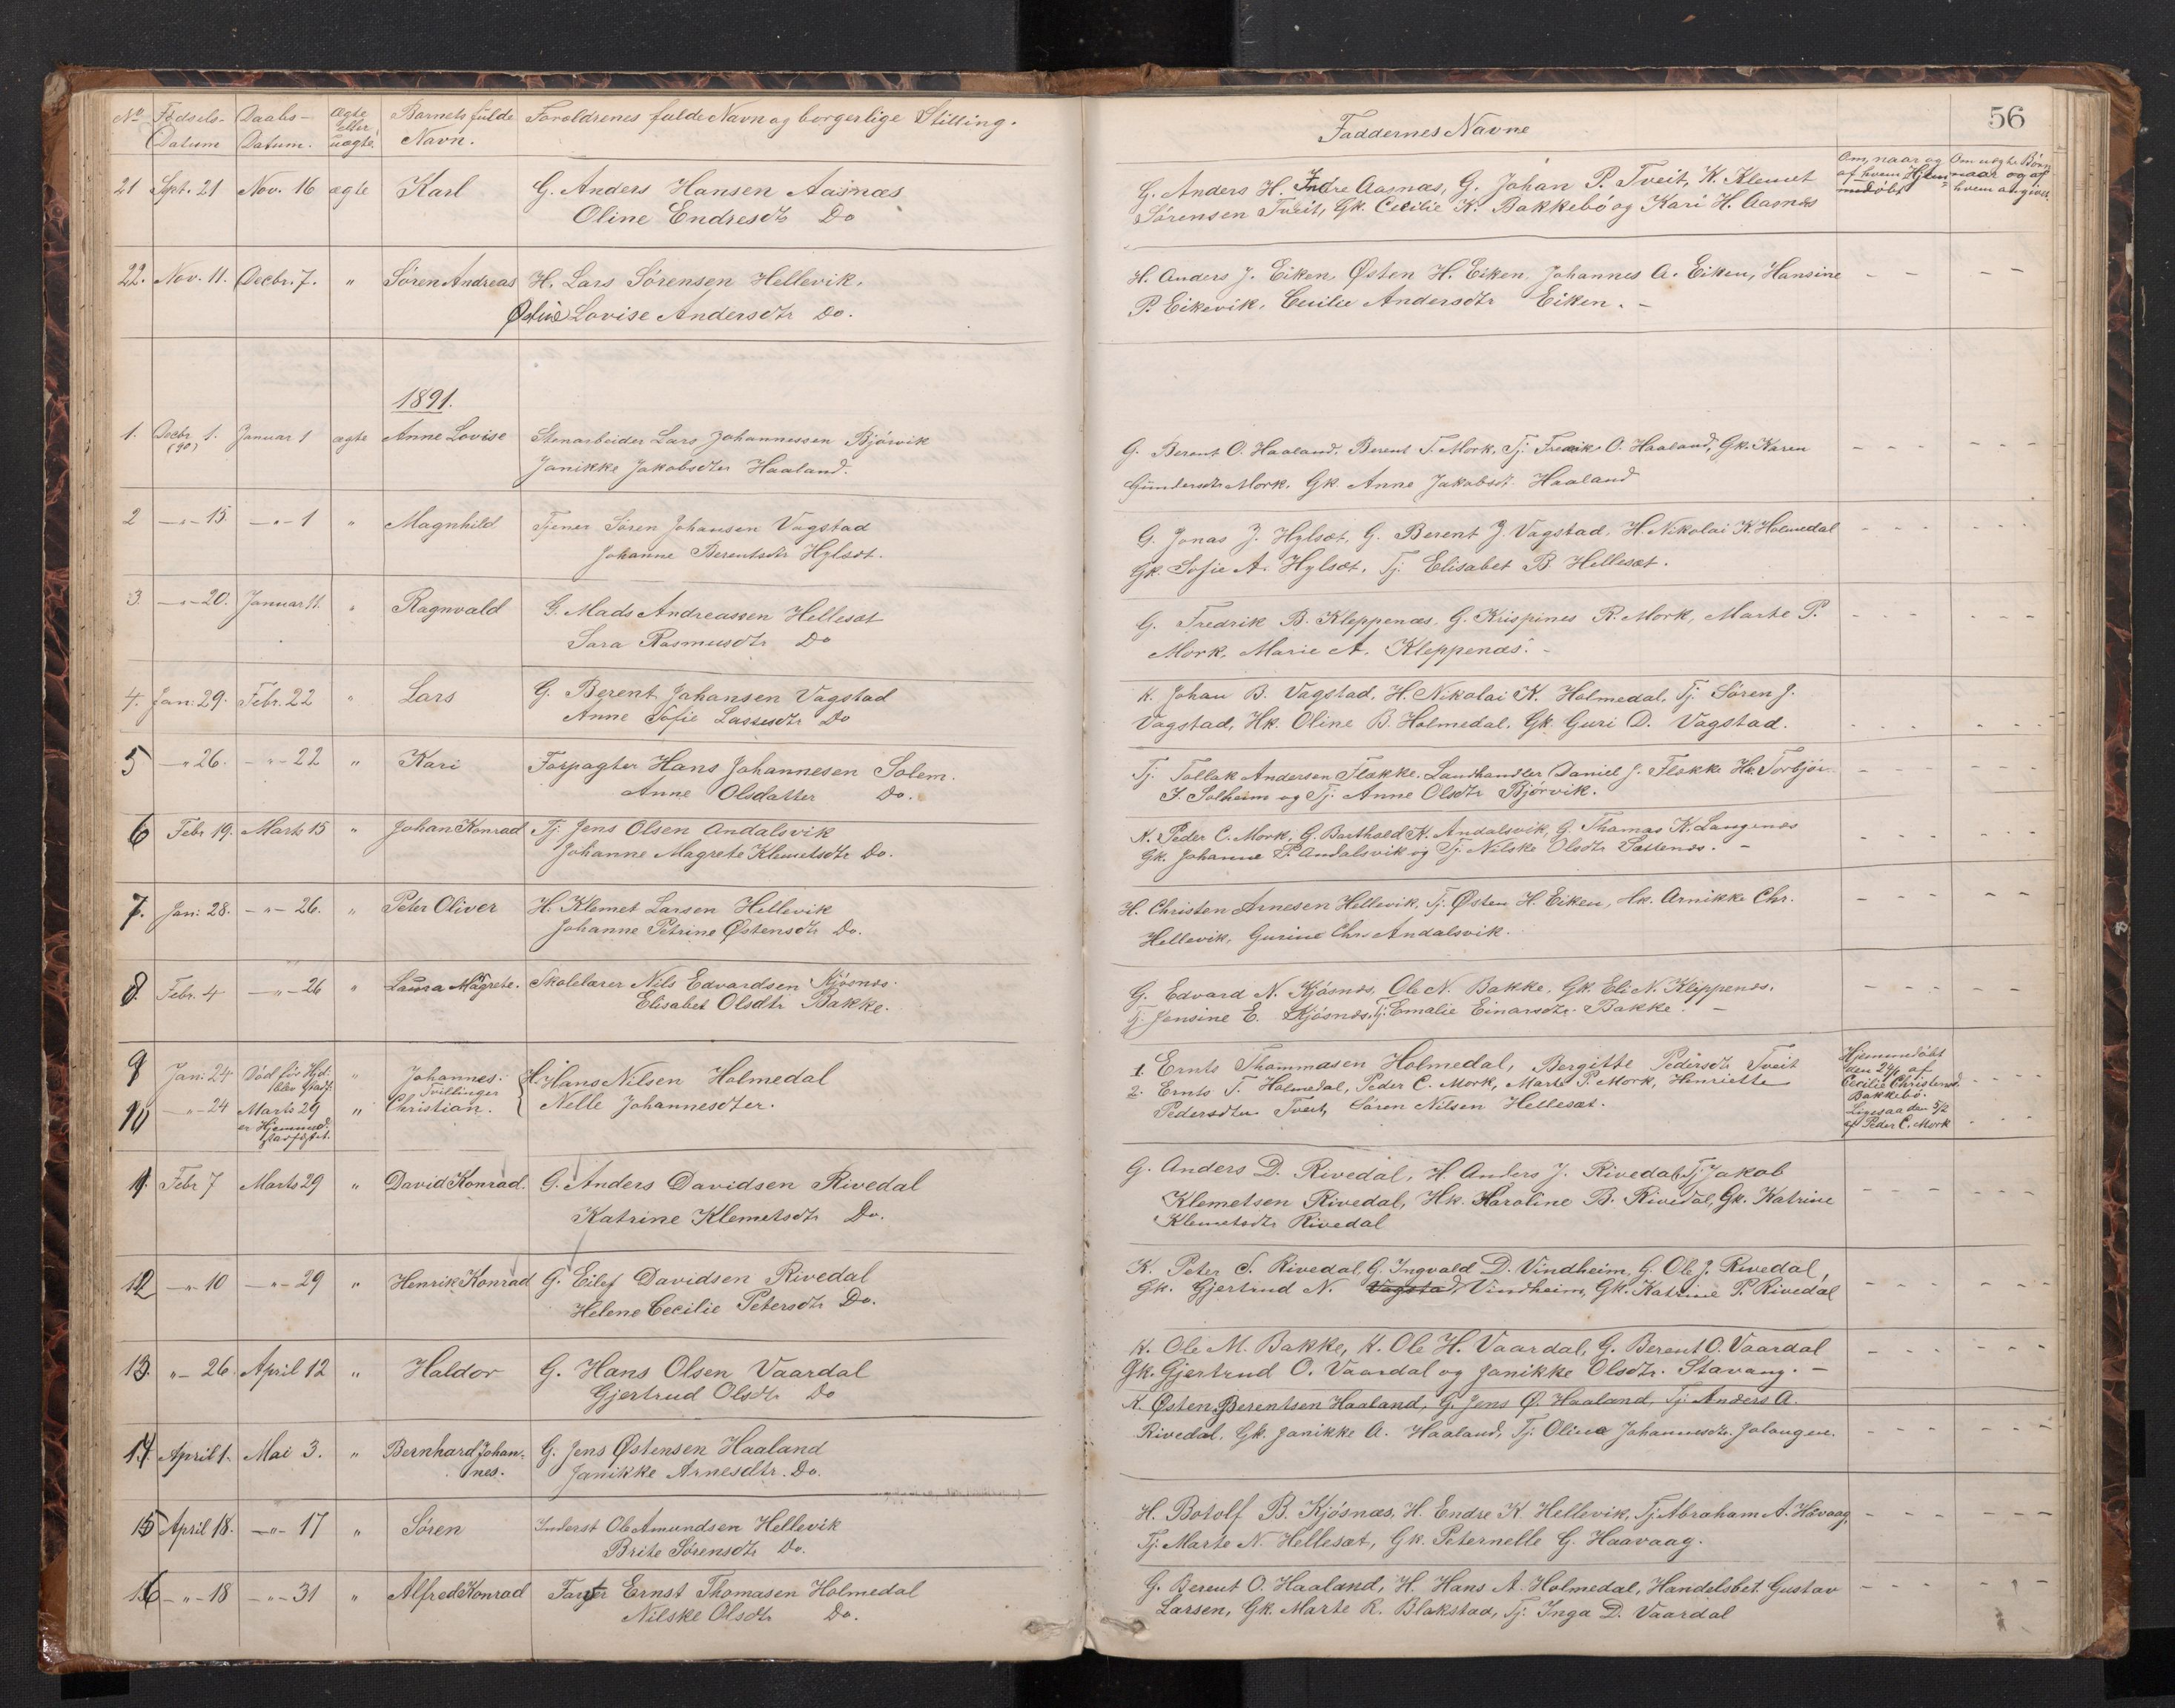 No Fødsels- Daabs- Ægte Barnets fulde Foroldrenes fulde Navn og borgerlige Stilling.
Datum Datum. eller uægte Navn.
21 Sept. 21 Nov. 16 ægte Karl G. Anders Hansen Aasnæs
Oline Endresdtr Do
22. Nov. 11. Decbr. 7. " Søren Andreas H. Lars Sørensen Hellevik.
Østine Lovise Andersdtr Do.
1891.
1. Decbr (90) 1. Januar 1 ægte Anne Lovise Stenarbeider Lars Johannessen Bjørvik
Janikke Jakobsdter Haaland.
2 —"—15. —"—1 " Magnhild Tjener Søren Johansen Vagstad
Johanne Berentsdtr Hylsæt.
3. —"—20. Januar 11. " Ragnvald G. Mads Andreassen Hellesæt
Sara Rasmusdtr Do
4. Jan. 29. Febr. 22 " Lars G. Berent Johansen Vagstad
Anne Sofie Lassesdtr Do
5 —"26. —"—22 " Kari Forpagter Hans Johannesen Solem.
Anne Olsdatter Do.
6 Febr 19. Marts 15 " Johan Konrad Tj. Jens Olsen Andalsvik
Johanne Magrete Klemetsdtr Do.
7. Jan: 28. —"—26. " Peter Oliver H. Klemet Larsen Hellevik
Johanne Petrine Østensdtr Do.
8. Febr. 4 —"—26 " Laura Magrete. Skolelærer Nils Edvardsen Kjøsnæs.
Elisabet Olsdtr Bakke.
9 Jan: 24 Død før Hjd: blev stadf: " Johannes: H. Hans Nilsen Holmedal
Tvillinger
10 —"—24 Marts 29 " Christian. Nelle Johannesdter.
er Hjemmed.
stadfæstet.
11. Febr 7 Marts 29 " David Konrad. G. Anders Davidsen Rivedal
Katrine Klemetsdtr Do.
12 —"—10 —"—29 " Henrik Konrad G. Eilef Davidsen Rivedal
Helene Cecilie Petersdtr Do.
13. "—26. April 12 " Haldor G. Hans Olsen Vaardal
Gjertrud Olsdtr Do
14 April 1. Mai 3. " Bernhard Johan- G. Jens Østensen Haaland
nes. Janikke Arnesdtr. Do.
15 April 18. —"—17 " Søren Inderst Ole Amundsen Hellevik
Brite Sørensdtr Do.
16 —"—18 —"—31 " Alfred Konrad Ernst Thomasen Holmedal
Nilske Olsdtr Do.
56
Faddernes Navne
Om, naar og af hvem Hjemmedøbt
Om uægte Børn naar og af hvem angivet.
G. Anders H. Indre Aasnæs, G. Johan P. Tveit, K. Klemet
Sørensen Tveit, Gk. Cecilie K. Bakkebø og Kari H. Aasnæs
H. Anders J. Eiken, Østen H. Eiken, Johannes A. Eiken, Hansine
P. Eikevik, Cecilie Andersdtr Eiken. —
G. Berent O. Haaland, Berent T. Mork, Tj. Fredrik O. Haaland, Gk. Karen
Gundersdtr Mork, Gk. Anne Jakobsdt. Haaland
G. Jonas J. Hylsæt, G. Berent J. Vagstad, H. Nikolai K. Holmedal
Gk. Sofie A. Hylsæt, Tj. Elisabet B. Hellesæt.
G. Fredrik B. Kleppenæs, G. Krispines R. Mork, Marte P.
Mork, Marie A. Kleppenæs. —
K. Johan B. Vagstad, H. Nikolai K. Holmedal, Tj. Søren J.
Vagstad, Hk. Oline B. Holmedal, Gk. Guri D. Vagstad.
Tj. Tollak Andersen Flække, Landhandler Daniel J. Flække Hk. Torbjør
J. Solheim og Tj. Anne Olsdtr Bjørvik.
K. Peder C. Mork, G. Barthold K. Andalsvik, G. Thomas K. Langenæs
Gk. Johanne P. Andalsvik og Tj. Nilske Olsdtr Sættenæs. —
H. Christen Arnesen Hellevik, Tj. Østen H. Eiken, Hk. Arnikke Chr.
Hellevik, Gurine Chr. Andalsvik.
G. Edvard N. Kjøsnæs, Ole N. Bakke, Gk. Eli N. Klippenæs.
Tj. Jensine E. Kjøsnæs, Tj. Emalie Einarsdtr. Bakke. —
1. Ernts Thammasen Holmedal, Bergitte Pedersdtr Tveit
2. Ernts T. Holmedal, Peder C. Mork, Marte P. Mork, Henriette
Pedersdter Tveit, Søren Nilsen Hellesæt.
Hjemmedøbt
den 24/1 af
Cecilie Christensd.
Bakkebø.
Ligesaa den 5/2
af Peder C. Mork
G. Anders D. Rivedal, H. Anders J. Rivedal, Tj. Jakob
Klemetsen Rivedal, Hk. Karoline B. Rivedal, Gk. Katrine
Klemetsdtr Rivedal
K. Peter S. Rivedal, G. Ingvald D. Vindheim, G. Ole J. Rivedal,
Gk. Gjertrud N. Vagstad Vindheim, Gk. Katrine P. Rivedal
K. Ole M. Bakke, K. Ole H. Vaardal, G. Berent O. Vaardal
Gk. Gjertrud O. Vaardal og Janikke Olsdtr. Stavang. —
K. Østen Berentsen Haaland, G. Jens Ø. Haaland, Tj. Anders A.
Rivedal, Gk. Janikke A. Haaland, Tj. Oline Johannesdtr. Jalangen.
H. Botolf B. Kjøsnæs, H. Endre K. Hellevik, Tj. Abraham A. Håvaag,
Tj. Marte N. Hellesæt, Gk. Peternelle G. Haavaag.
G. Berent O. Haaland, H. Hans A. Holmedal, Handelsbet. Gustav
Larsen, Gk. Marte R. Blakstad, Tj. Inga D. Vaardal